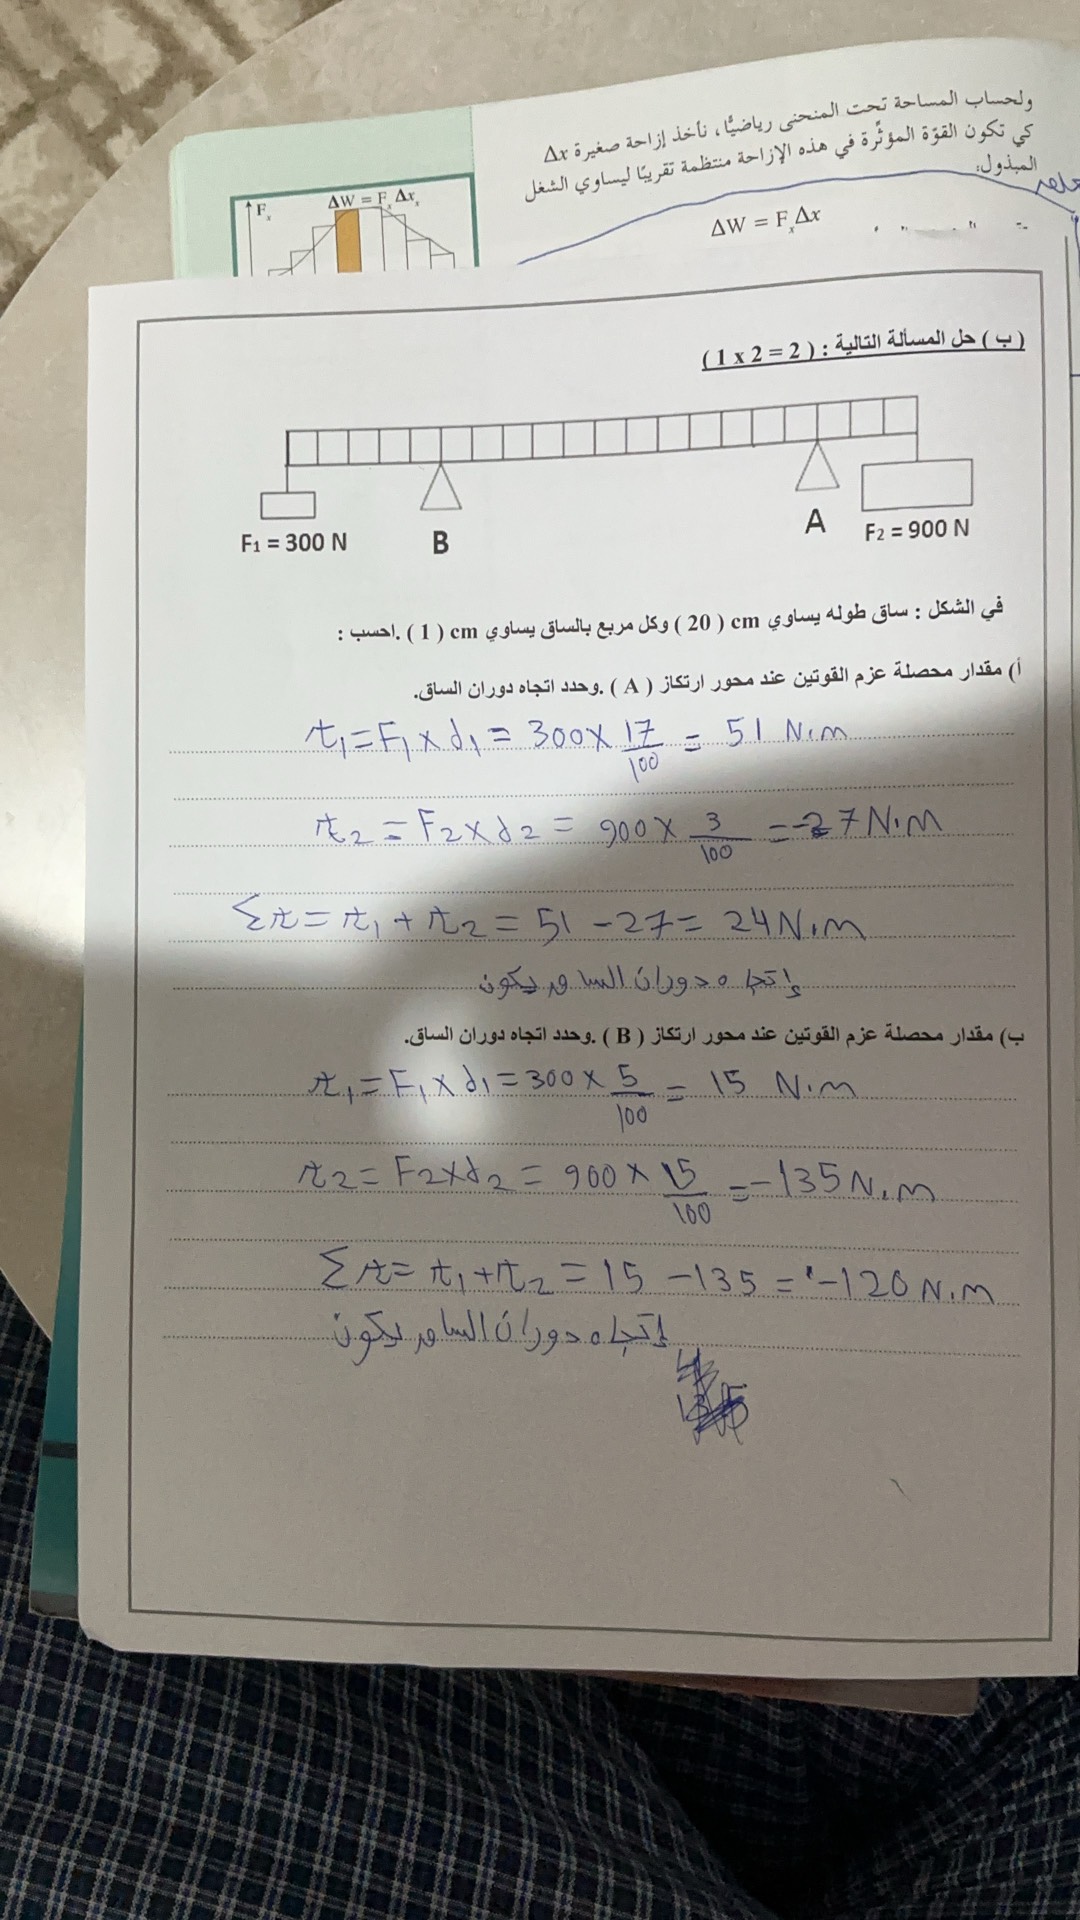 ولحساب المساحة تحت المنحنى رياضيًّا، نأخذ إزاحة صغيرة Δx
كي تكون القوّة المؤثّرة في هذه الإزاحة منتظمة تقريبًا ليساوي الشغل
المبذول:
ΔW = FₓΔx
Fₓ
ΔW = FₓΔxₓ
( ب ) حل المسألة التالية : ( 2 = 2 x 1 )
F₁ = 300 N
B
A
F₂ = 900 N
في الشكل : ساق طوله يساوي cm ( 20 ) وكل مربع بالساق يساوي cm ( 1 ) .احسب :
أ) مقدار محصلة عزم القوتين عند محور ارتكاز ( A ) .وحدد اتجاه دوران الساق.
τ₁ = F₁ x d₁ = 300 x 17/100 = 51 N.m
τ₂ = F₂ x d₂ = 900 x 3/100 = -27 N.m
Στ = τ₁ + τ₂ = 51 - 27 = 24 N.m
إتجاه دوران الساق يكون
ب) مقدار محصلة عزم القوتين عند محور ارتكاز ( B ) .وحدد اتجاه دوران الساق.
τ₁ = F₁ x d₁ = 300 x 5/100 = 15 N.m
τ₂ = F₂ x d₂ = 900 x 15/100 = -135 N.m
Στ = τ₁ + τ₂ = 15 - 135 = -120 N.m
إتجاه دوران الساق يكون